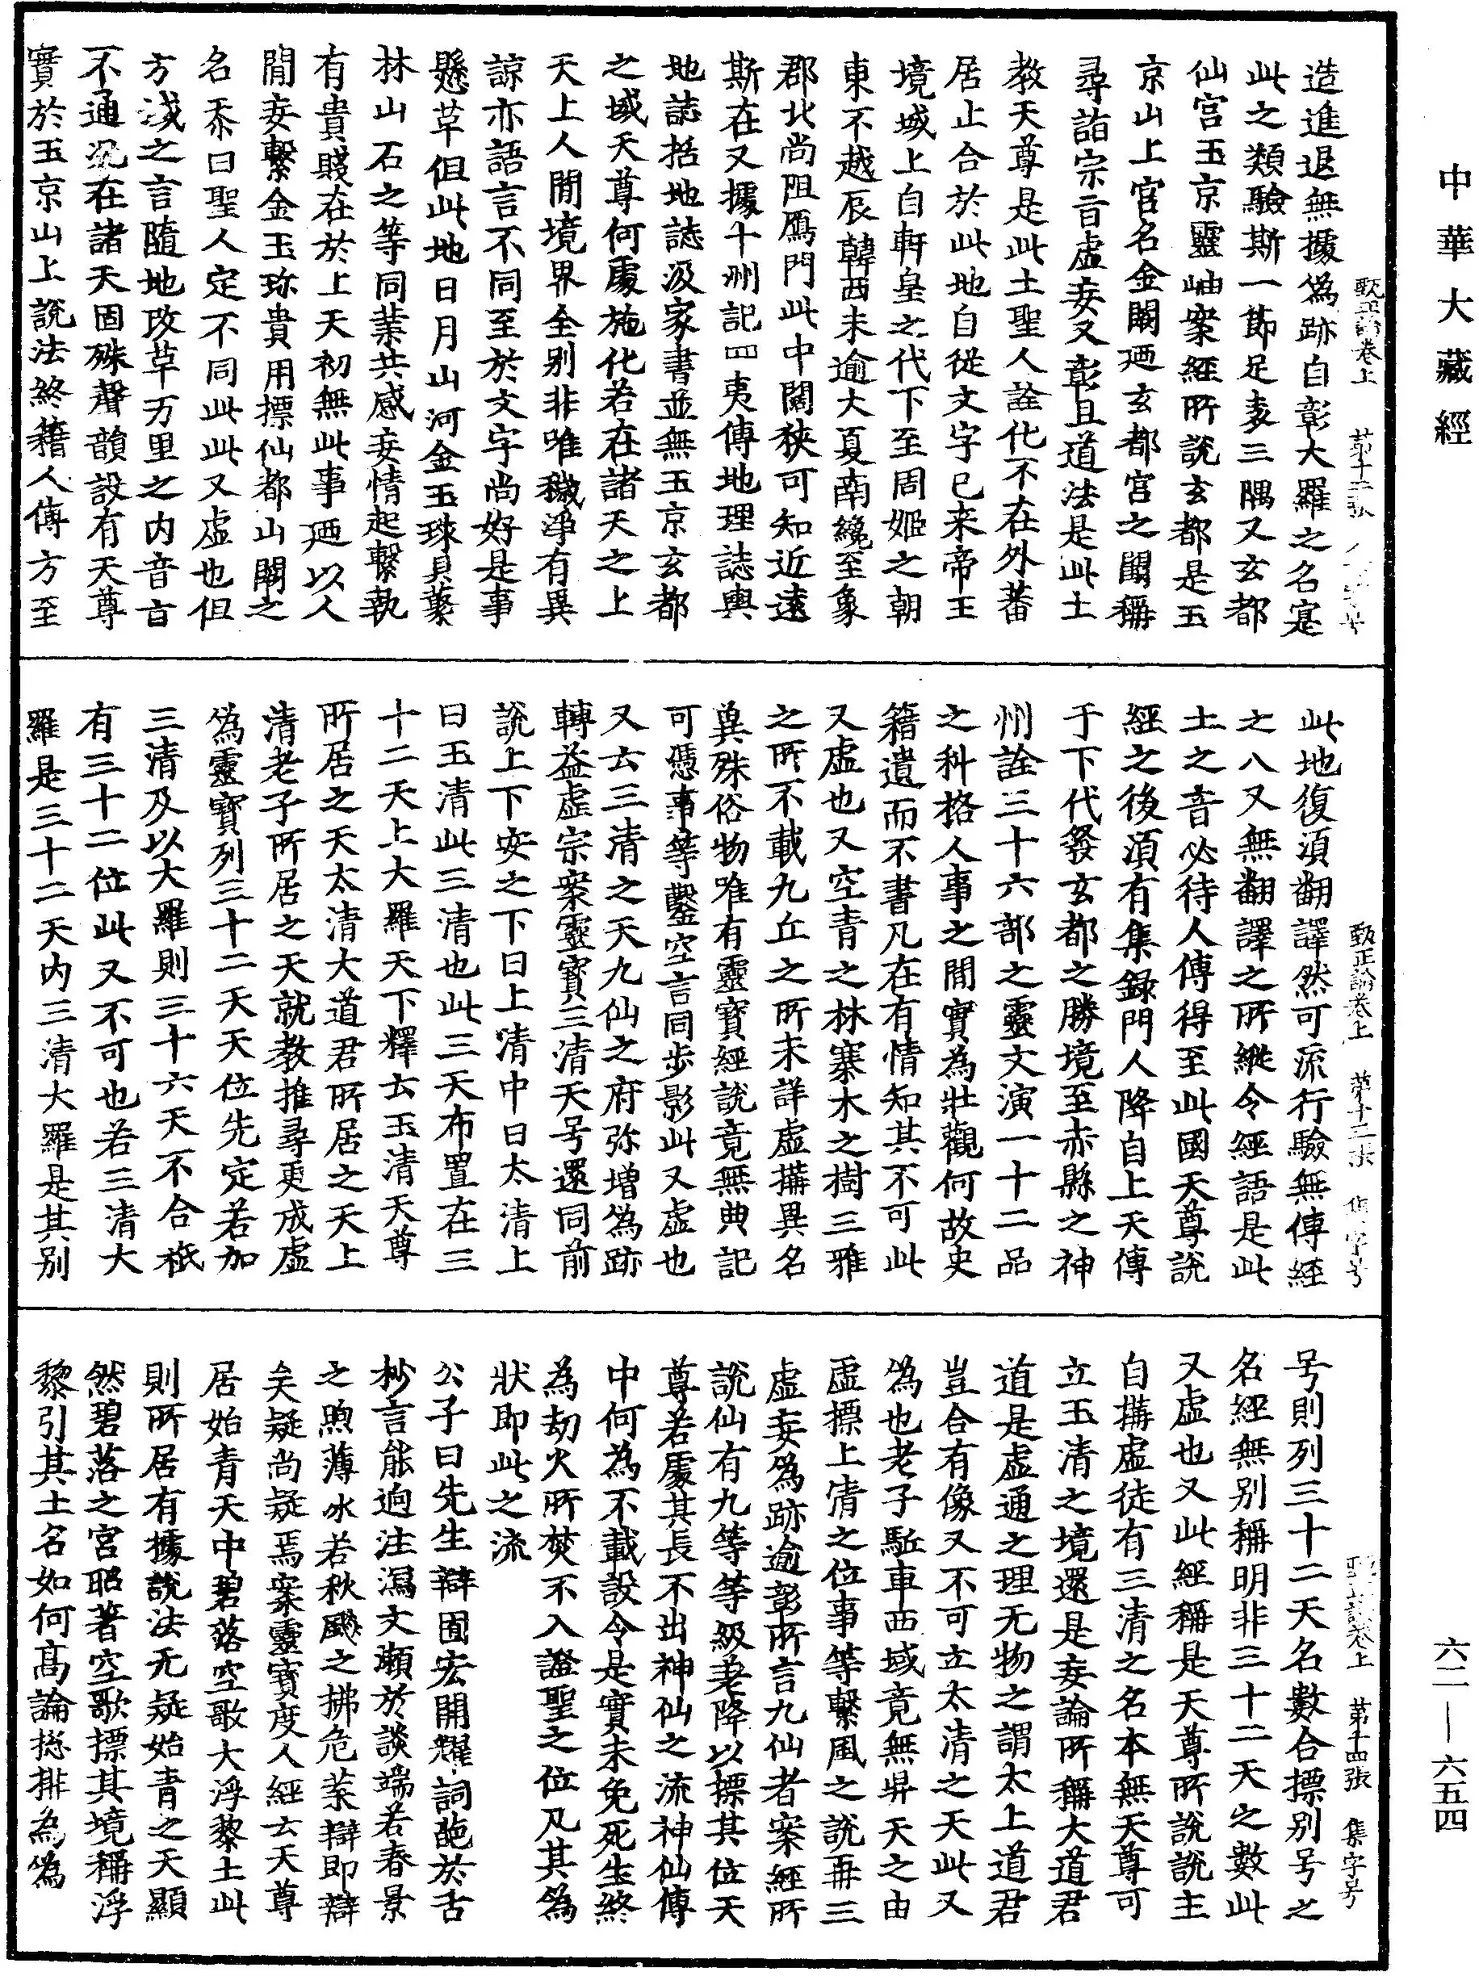 中華大藏經
甄正論卷上　第十二張　集字号
造進退無據爲跡自彰大羅之名寔
此之類驗斯一節足表三隅又玄都
仙宮玉京靈岫案經所說玄都是玉
京山上宮名金闕迺玄都宮之闕稱
尋詣宗旨虛妄又彰且道法是此土
教天尊是此土聖人詮化不在外蕃
居止合於此地自從文字已来帝王
境域上自軒皇之代下至周姬之朝
東不越辰韓西未逾大夏南纔至象
郡北尚阻鴈門此中闊狹可知近遠
斯在又據十洲記四夷傳地理誌輿
地誌括地誌汲冢書並無玉京玄都
之域天尊何處施化若在諸天之上
天上人間境界全別非唯穢淨有異
諒亦語言不同至於文字尚好是事
懸草但此地日月山河金玉珠貝藂
林山石之等同業共感妄情起繫執
有貴賤在於上天初無此事迺以人
間妄繫金玉珎貴用摽仙都山闕之
名柰曰聖人定不同此此又虛也但
方淺之言隨地攺草万里之内音旨
不通況在諸天固殊聲韻設有天尊
實於玉京山上說法終藉人傳方至
甄正論卷上　第十三張　集字号
此地復湏翻譯然可流行驗無傳經
之人又無翻譯之所縱令經語是此
土之音必待人傳得至此國天尊說
經之後湏有集録門人降自上天傳
于下代發玄都之勝境至赤縣之神
州詮三十六部之靈文演一十二品
之科格人事之間實為壯觀何故史
籍遺而不書凡在有情知其不可此
又虛也又空青之林騫木之樹三雅
之所不載九丘之所未詳虛搆異名
奠殊俗物唯有靈寶經說竟無典記
可憑事等鑿空言同步影此又虛也
又云三清之天九仙之府弥增為跡
轉益虛宗案靈寶三清天号還同前
說上下安之下曰上清中曰太清上
曰玉清此三清也此三天布置在三
十二天上大羅天下釋云玉清天尊
所居之天太清大道君所居之天上
清老子所居之天就教推尋更成虛
偽靈寶列三十二天天位先定若加
三清及以大羅則三十六天不合秖
有三十二位此又不可也若三清大
羅是三十二天内三清大羅是其別
甄正論卷上　第十四張　集字号
号則列三十二天名數合摽別号之
名經無別稱明非三十二天之數此
又虛也又此經稱是天尊所說說主
自搆虛徒有三清之名本無天尊可
立玉清之境還是妄論所稱大道君
道是虛通之理无物之謂太上道君
豈合有像又不可立太清之天此又
偽也老子駈車西域竟無昇天之由
虛摽上清之位事等繫風之說再三
虛妄為跡逾彰所言九仙者案經所
說仙有九等等級差降以摽其位天
尊若處其長不出神仙之流神仙傳
中何為不載設令是實未免死生終
為劫火所焚不入證聖之位凡其為
狀即此之流
公子曰先生辯囿宏開耀詞葩於舌
杪言䏻逈注瀉文瀬於談端若春景
之煦薄冰若秋飈之拂危葉辯即辯
矣疑尚疑焉案靈寶度人經云天尊
居始青天中碧落空歌大浮黎土此
則所居有據說法无疑始青之天顯
然碧落之宮昭著空歌摽其境稱浮
黎引其土名如何髙論揔排為偽
六二—六五四